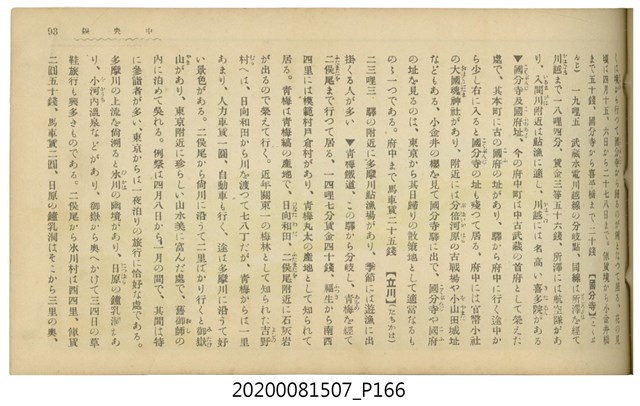 93 線央中
まで五十錢、國分寺から喜平橋まで二十錢 【國分寺】
一九哩五 武藏水電川越線の分岐點、同線に所澤を經て
川越まで一八哩四分、賃金三等五十六錢、所澤には航空隊があ
り、入間川附近は鮎漁に適し、川越には名高い喜多院がある
▼國分寺及國府址、今の府中町は中古武藏の首府として榮えた
處で、其本町に古の國府の址があり、驛から府中に行く途中か
ら少し右に入ると國分寺の址も殘つて居る、府中には官幣小社
の大國魂神社があり、附近には分倍河原の古戰場や小山田城址
などもある、小金井の櫻を見て國分寺驛に出で、國分寺や國府
の址を見るのは、東京から其日歸りの散策地として適當なるも
の一つである。府中まで馬車賃二十五錢 【立川】（たちかは）
二三哩三 驛の附近に多摩川鮎漁場があり、季節には遊漁に出
掛くる人が多い ▼青梅鐵道、この驛から分岐し、青梅を經て
二俣尾まで行つて居る、一四哩七分賃金四十錢、福生から南西
四里に模範村戸倉村があり、青梅丸太の產地として知られて
居る。青梅は青梅縞の產地で、日向和田、二俣尾附近に石灰岩
が出るので榮えて行く。近年關東一の梅林として知られた吉野
村へは、日向和田から川を渡つて七八丁だが、青梅からは一里
あまり、人力車賃一圓、自動車も行く、途は多摩川に沿うて好
い景色がある。二俣尾から尙川に沿うて二里ばかり行くと御嶽
山があり、東京附近に珍らしい山水美に富んだ處で、舊御師の
內に泊めて吳れる。例祭は四月八日から一月の間で、其間は特
に參詣者が多い、東京からは一夜泊りの旅行に恰好な處である。
多摩川の上流を尙溯ると氷川の幽境があり、日原の鐘乳洞もあ
り、小河內溫泉などがあり、御嶽から奧へかけて三四日の草
鞋旅行も興多きものである。二俣尾から氷川村は四四里、俥賃
二圓五十錢、馬車賃二圓、日原の鐘乳洞はそこから三里の奧、
20200081507_P166